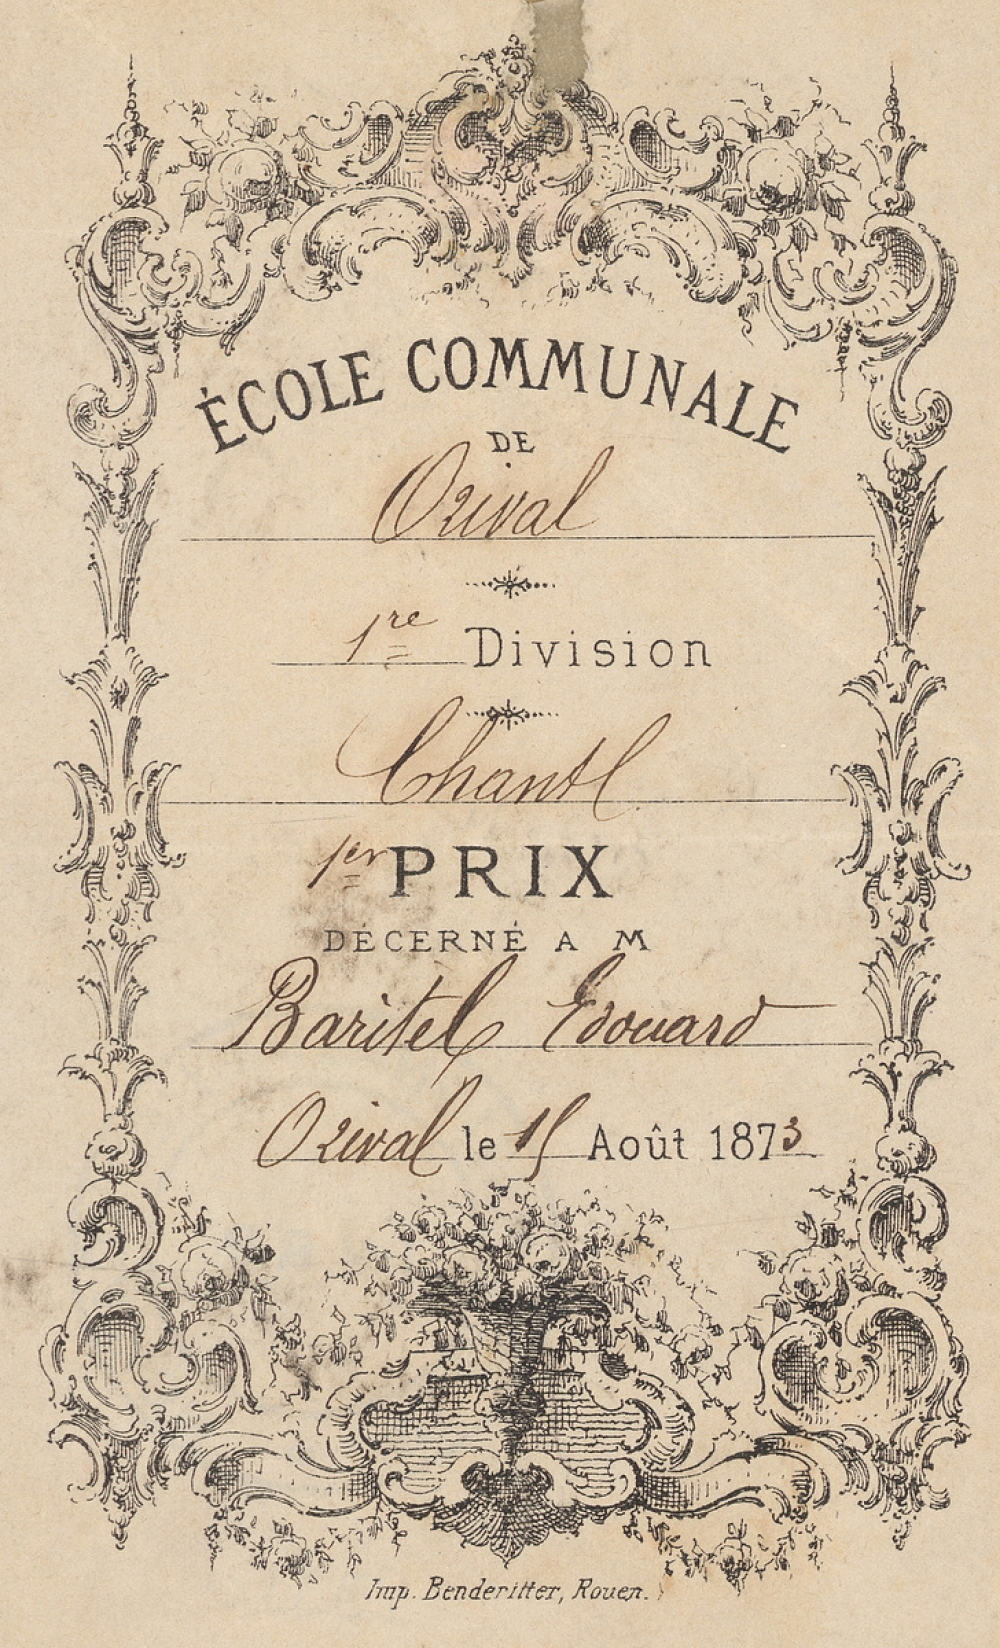 ÉCOLE COMMUNALE
DE
Orival
1re Division
Chant
1er PRIX
DÉCERNÉ A M
Baritel Edouard
Orival le 15 Août 1873
Imp. Benderitter, Rouen.